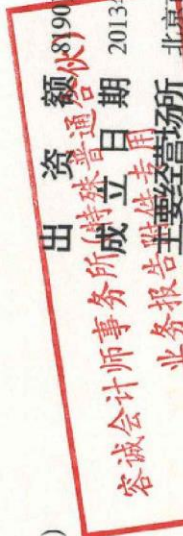 出资额 8190
成立日期 2013
主要经营场所 北京
容诚会计师事务所(特殊普通合伙)
业务报告附件专用